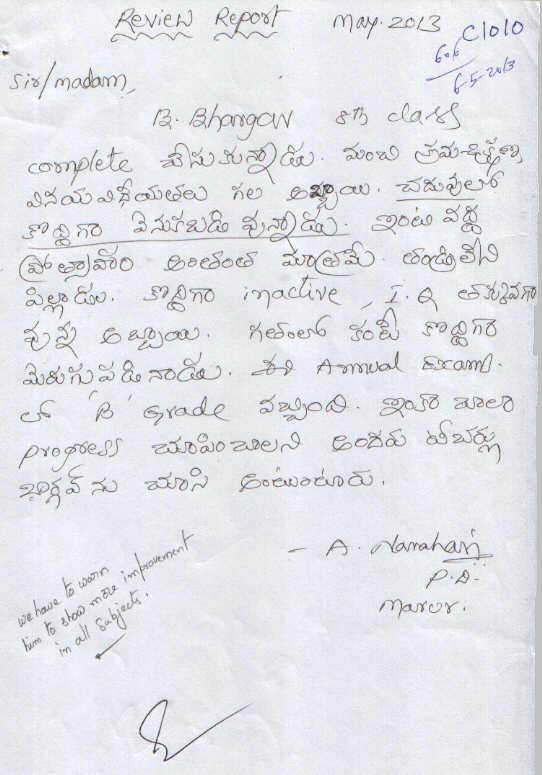 Review Report May-2013
C1010
606
6-5-2013
Sir/madam,
B. Bhargav 8th class
complete చేసుకున్నాడు. మంచి క్రమశిక్షణ,
వినయవిధేయతలు గల అబ్బాయి. చదువులో
కొద్దిగా వెనుకబడి వున్నాడు. ఇంటి వద్ద
ప్రోత్సాహం అంతంత మాత్రమే. తండ్రిలేని
పిల్లాడు. కొద్దిగా inactive, I.Q తక్కువగా
వున్న అబ్బాయి. గతంలో కంటే కొద్దిగా
మెరుగుపడినాడు. ఈ Annual Exams.
లో 'B' Grade వచ్చింది. ఇంకా చాలా
progress చూపించాలని అందరు టీచర్లు
భార్గవ్ ను చూసి అంటుంటారు.
- A. Narahari
P.D.
Marur.
we have to warn
him to show more improvement
in all subjects.